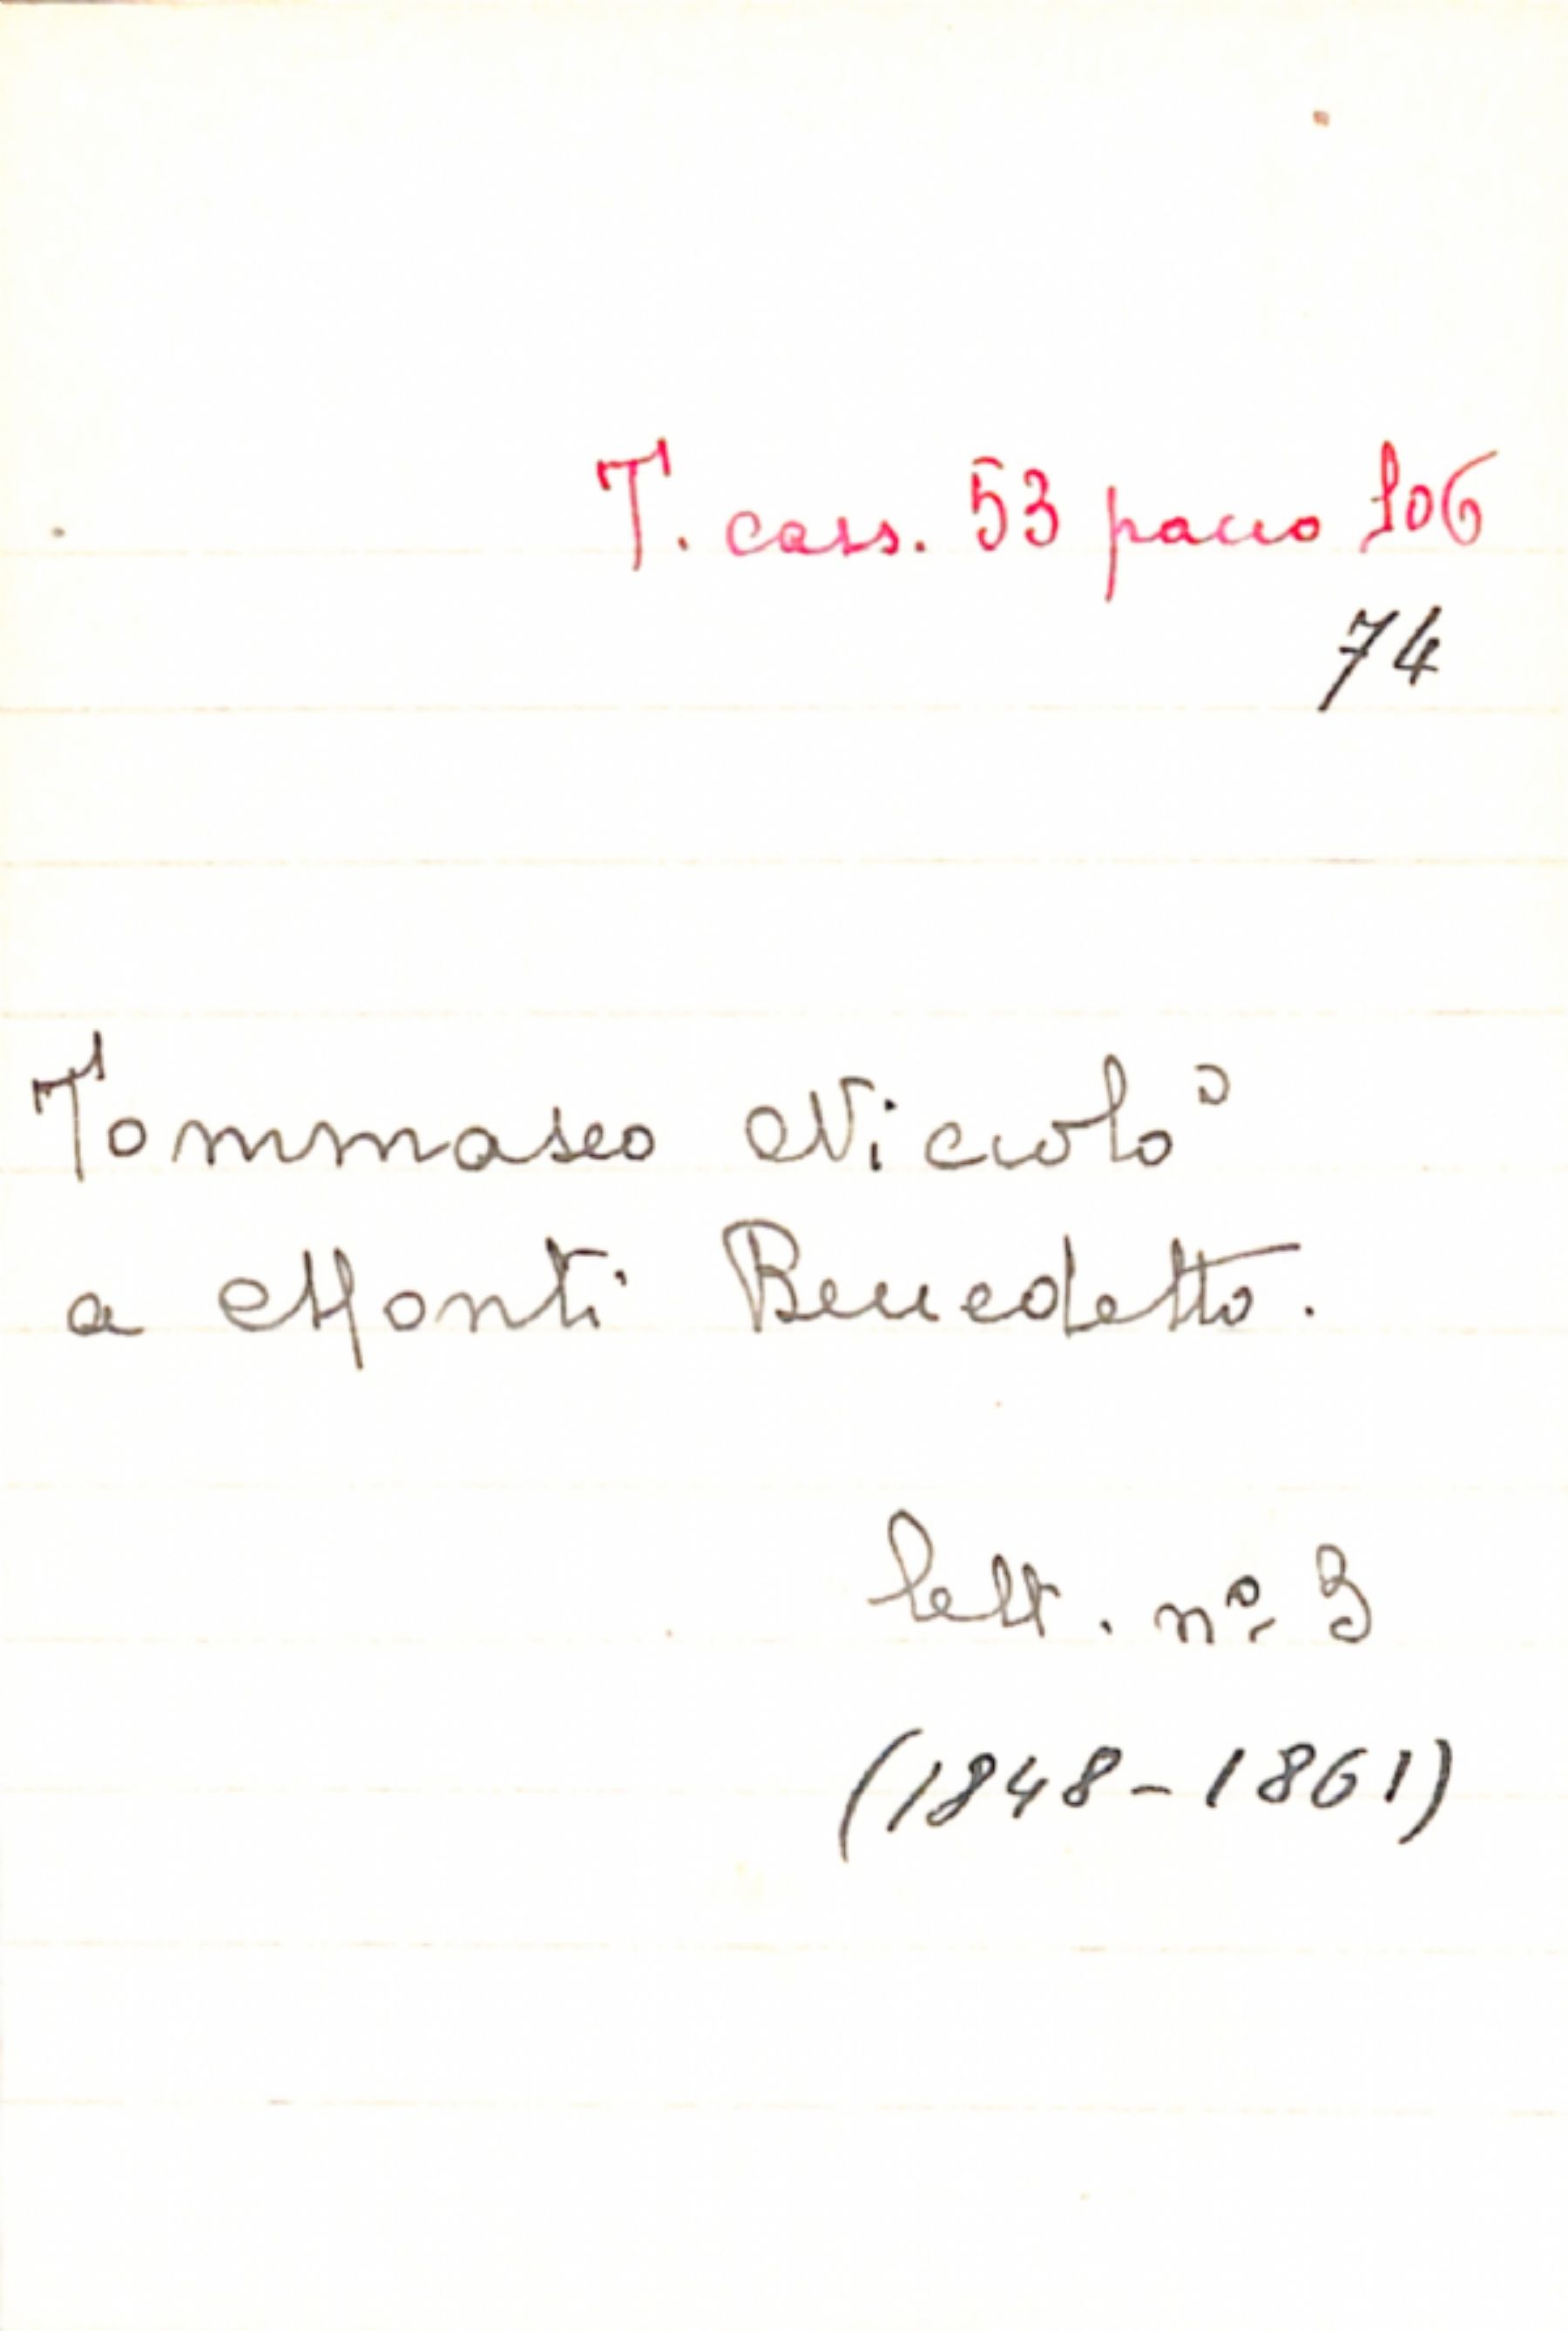 T. cass. 53 pacco 106
74
Tommaseo Niccolò
a Monti Benedetto.
lett. nº 3
(1848-1861)